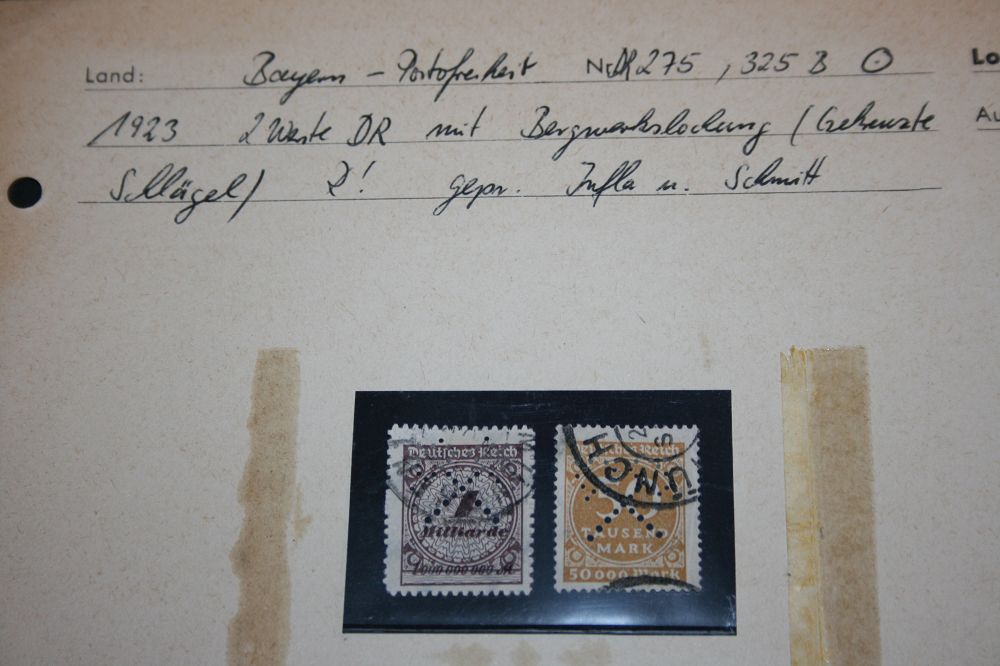 Land: Bayern - Portofreiheit Nr. DR 275, 325 B ⊙
Lo
1923 2 Werte DR mit Bergwerkslochung (Gekreuzte
Au
Schlägel) R! gepr. Infla u. Schmitt
Deutsches Reich
1
Milliarde
1000 000 000 M
Deutsches Reich
ÜNCH
TAUSEN
MARK
50000 Mark